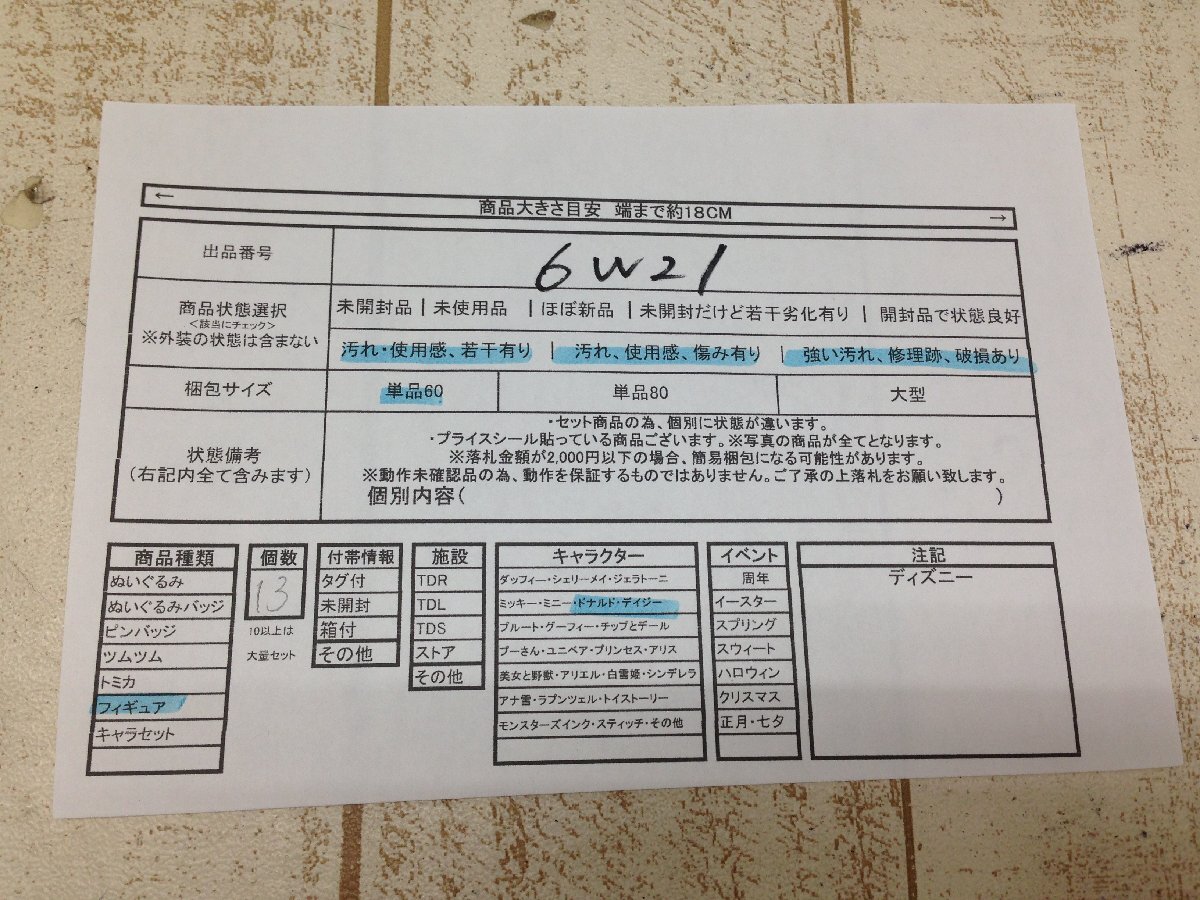 ← 商品大きさ目安 端まで約18CM →
出品番号 6W21
商品状態選択
<該当にチェック>
※外装の状態は含まない
未開封品 | 未使用品 | ほぼ新品 | 未開封だけど若干劣化有り | 開封品で状態良好
汚れ・使用感、若干有り | 汚れ、使用感、傷み有り | 強い汚れ、修理跡、破損あり
梱包サイズ 単品60 単品80 大型
状態備考
(右記内全て含みます)
・セット商品の為、個別に状態が違います。
・プライスシール貼っている商品ございます。※写真の商品が全てとなります。
※落札金額が2,000円以下の場合、簡易梱包になる可能性があります。
※動作未確認品の為、動作を保証するものではありません。ご了承の上落札をお願い致します。
個別内容( )
商品種類
ぬいぐるみ
ぬいぐるみバッジ
ピンバッジ
ツムツム
トミカ
フィギュア
キャラセット
個数
13
10以上は
大量セット
付帯情報
タグ付
未開封
箱付
その他
施設
TDR
TDL
TDS
ストア
その他
キャラクター
ダッフィー・シェリーメイ・ジェラトーニ
ミッキー・ミニー・ドナルド・デイジー
プルート・グーフィー・チップとデール
プーさん・ユニベア・プリンセス・アリス
美女と野獣・アリエル・白雪姫・シンデレラ
アナ雪・ラプンツェル・トイストーリー
モンスターズインク・スティッチ・その他
イベント
周年
イースター
スプリング
スウィート
ハロウィン
クリスマス
正月・七夕
注記
ディズニー